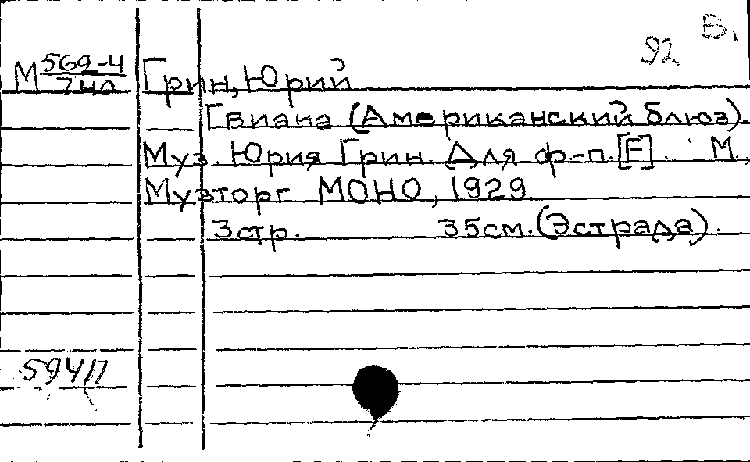 92 В.
М 569-4/740 Грин, Юрий
Гвиана (Американский блюз).
Муз. Юрия Грин. Для ф-п. [F]. М.,
Музторг МОНО, 1929
3стр. 35см. (Эстрада).
594П